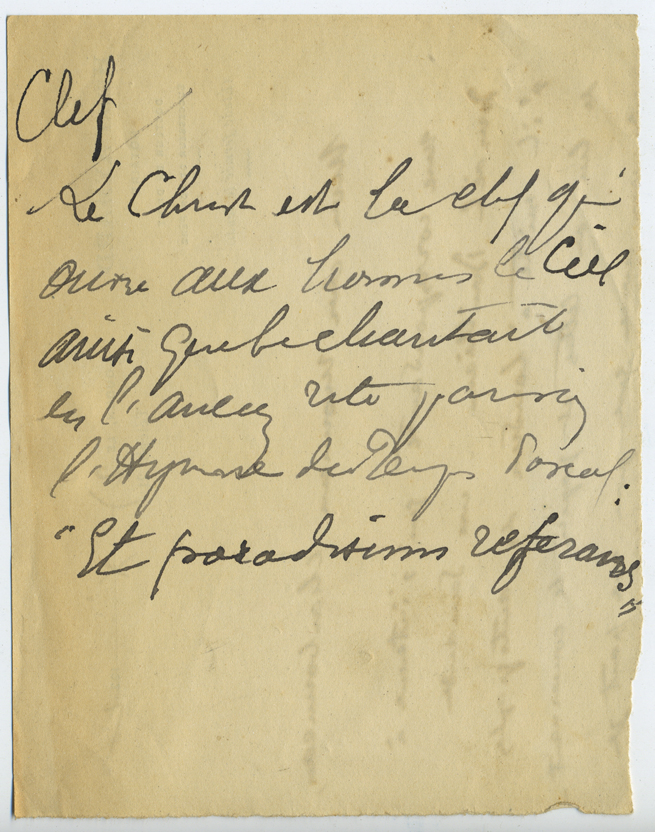 Clef
Le Christ est la clef qui
ouvre aux hommes le Ciel
ainsi que le chantait
en l'ancien rite parisien
l'Hymne du Temps Pascal :
"Et paradisum reserans"